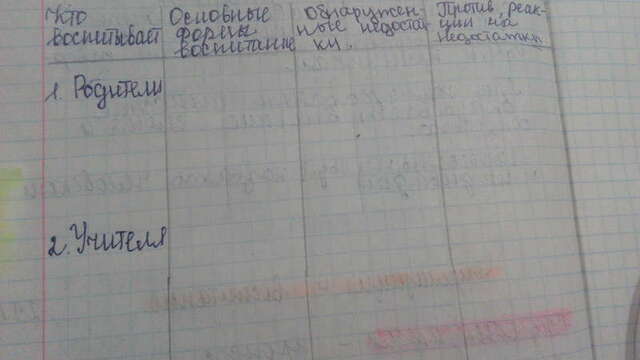 Кто
воспитывает
Основные
формы
воспитание
Обнаружен-
ные недостат-
ки.
Против. реак-
ции на
недостатки.
1. Родители
2. Учителя